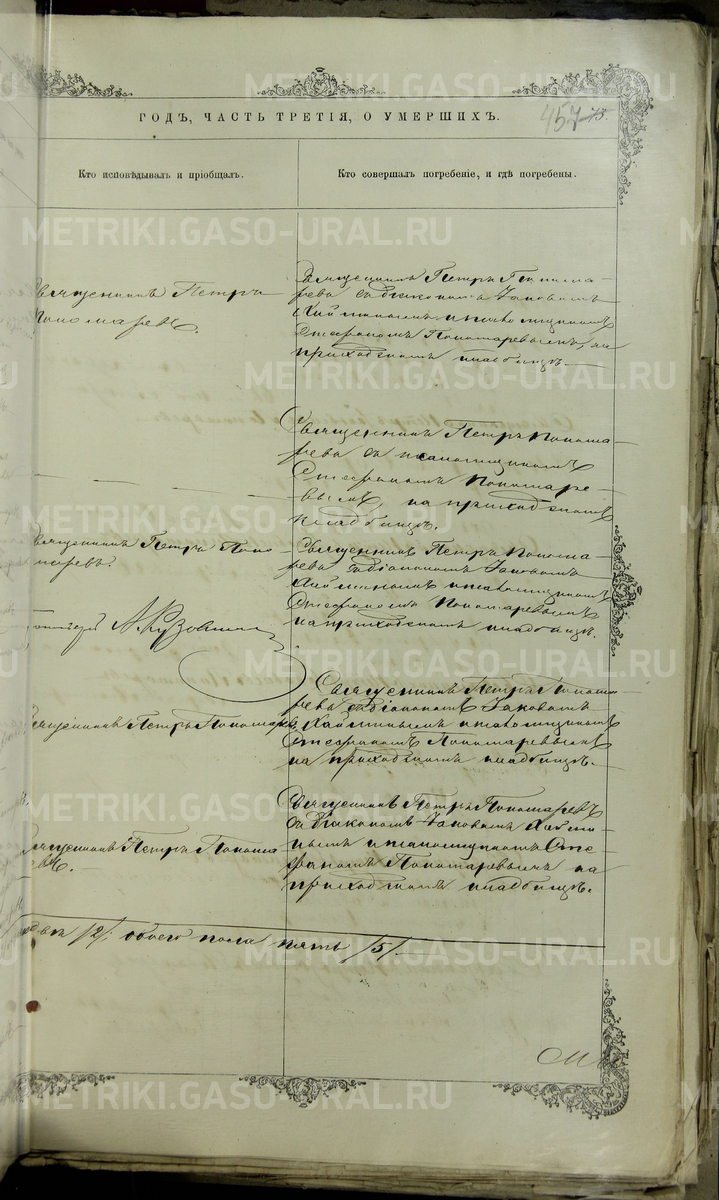 457
ГОДЪ, ЧАСТЬ ТРЕТІЯ, О УМЕРШИХЪ.
Кто исповѣдывалъ и пріобщалъ.
Кто совершалъ погребеніе, и гдѣ погребены.
Священникъ Петръ
Пономаревъ.
Священникъ Петръ Понома-
ревъ съ діакономъ Іаковомъ
и псаломщикомъ
Стефаномъ Пономаревымъ, на
приходскомъ кладбищѣ.
Священникъ Петръ Понома-
ревъ съ псаломщикомъ
Стефаномъ Пономаре-
вымъ, на приходскомъ
кладбищѣ.
Священникъ Петръ Поно-
маревъ.
Священникъ Петръ Понома-
ревъ съ діакономъ Іаковомъ
и псаломщикомъ
Стефаномъ Пономаревымъ
на приходскомъ кладбищѣ.
Священникъ Петръ Пономаревъ
Священникъ Петръ Понома-
ревъ съ діакономъ Іаковомъ
и псаломщикомъ
Стефаномъ Пономаревымъ
на приходскомъ кладбищѣ.
Священникъ Петръ Понома-
ревъ.
Священникъ Петръ Пономаревъ
съ діакономъ Іаковомъ
и псаломщикомъ Сте-
фаномъ Пономаревымъ на
приходскомъ кладбищѣ.
/2/. обоего пола пять /5/.
METRIKI.GASO-URAL.RU